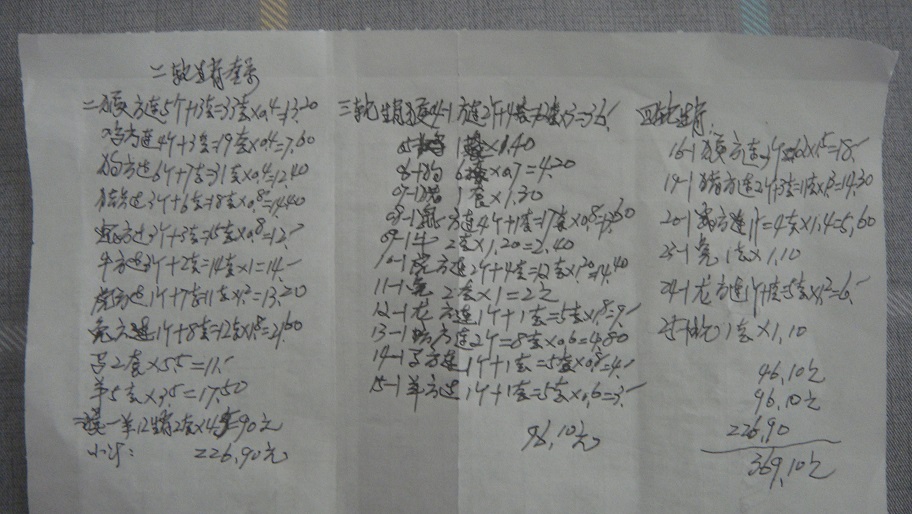 二轮生肖套票
二猴方连5个+13套=33套×0.4=13.20
鸡方连4个+3套=19套×0.4=7.60
狗方连6个+7套=31套×0.4=12.40
猪方连3个+6套=18套×0.8=14.40
鼠方连3个+3套=15套×0.8=12.-
牛方连3个+2套=14套×1=14.-
虎方连1个+7套=11套×1.2=13.20
兔方连1个+8套=12套×1.8=21.60
2套×5.5=11.-
羊5套×3.5=17.50
猴一羊12生肖2套×45=90元
小计: 226.90元
三轮生肖猴04-1方连2个+4套=12套×3=36.-
05-1鸡 1套×1.40
06-1狗 6套×0.7=4.20
07-1猪 1套×1.30
08-1鼠方连4个+1套=17套×0.8=13.60
09-1牛 2套×1.20=2.40
10-1虎方连2个+4套=12套×1.20=14.40
11-1兔 2套×1=2元
12-1龙方连1个+1套=5套×1.8=9.-
13-1蛇方连2个=8套×0.6=4.80
14-1马方连1个+1套=5套×0.8=4.-
15-1羊方连1个+1套=5套×0.6=3.-
96.10元
四轮生肖:
16-1猴方连
19-1猪方连2个+3套=11套×1.3=14.30
20-1鼠方连1个=4套×1.4=5.60
23-1兔 1套×1.10
24-1龙方连1个+1套=5套×1.2=6.-
25-1蛇 1套×1.10
46.10元
96.10元
226.90
369.10元